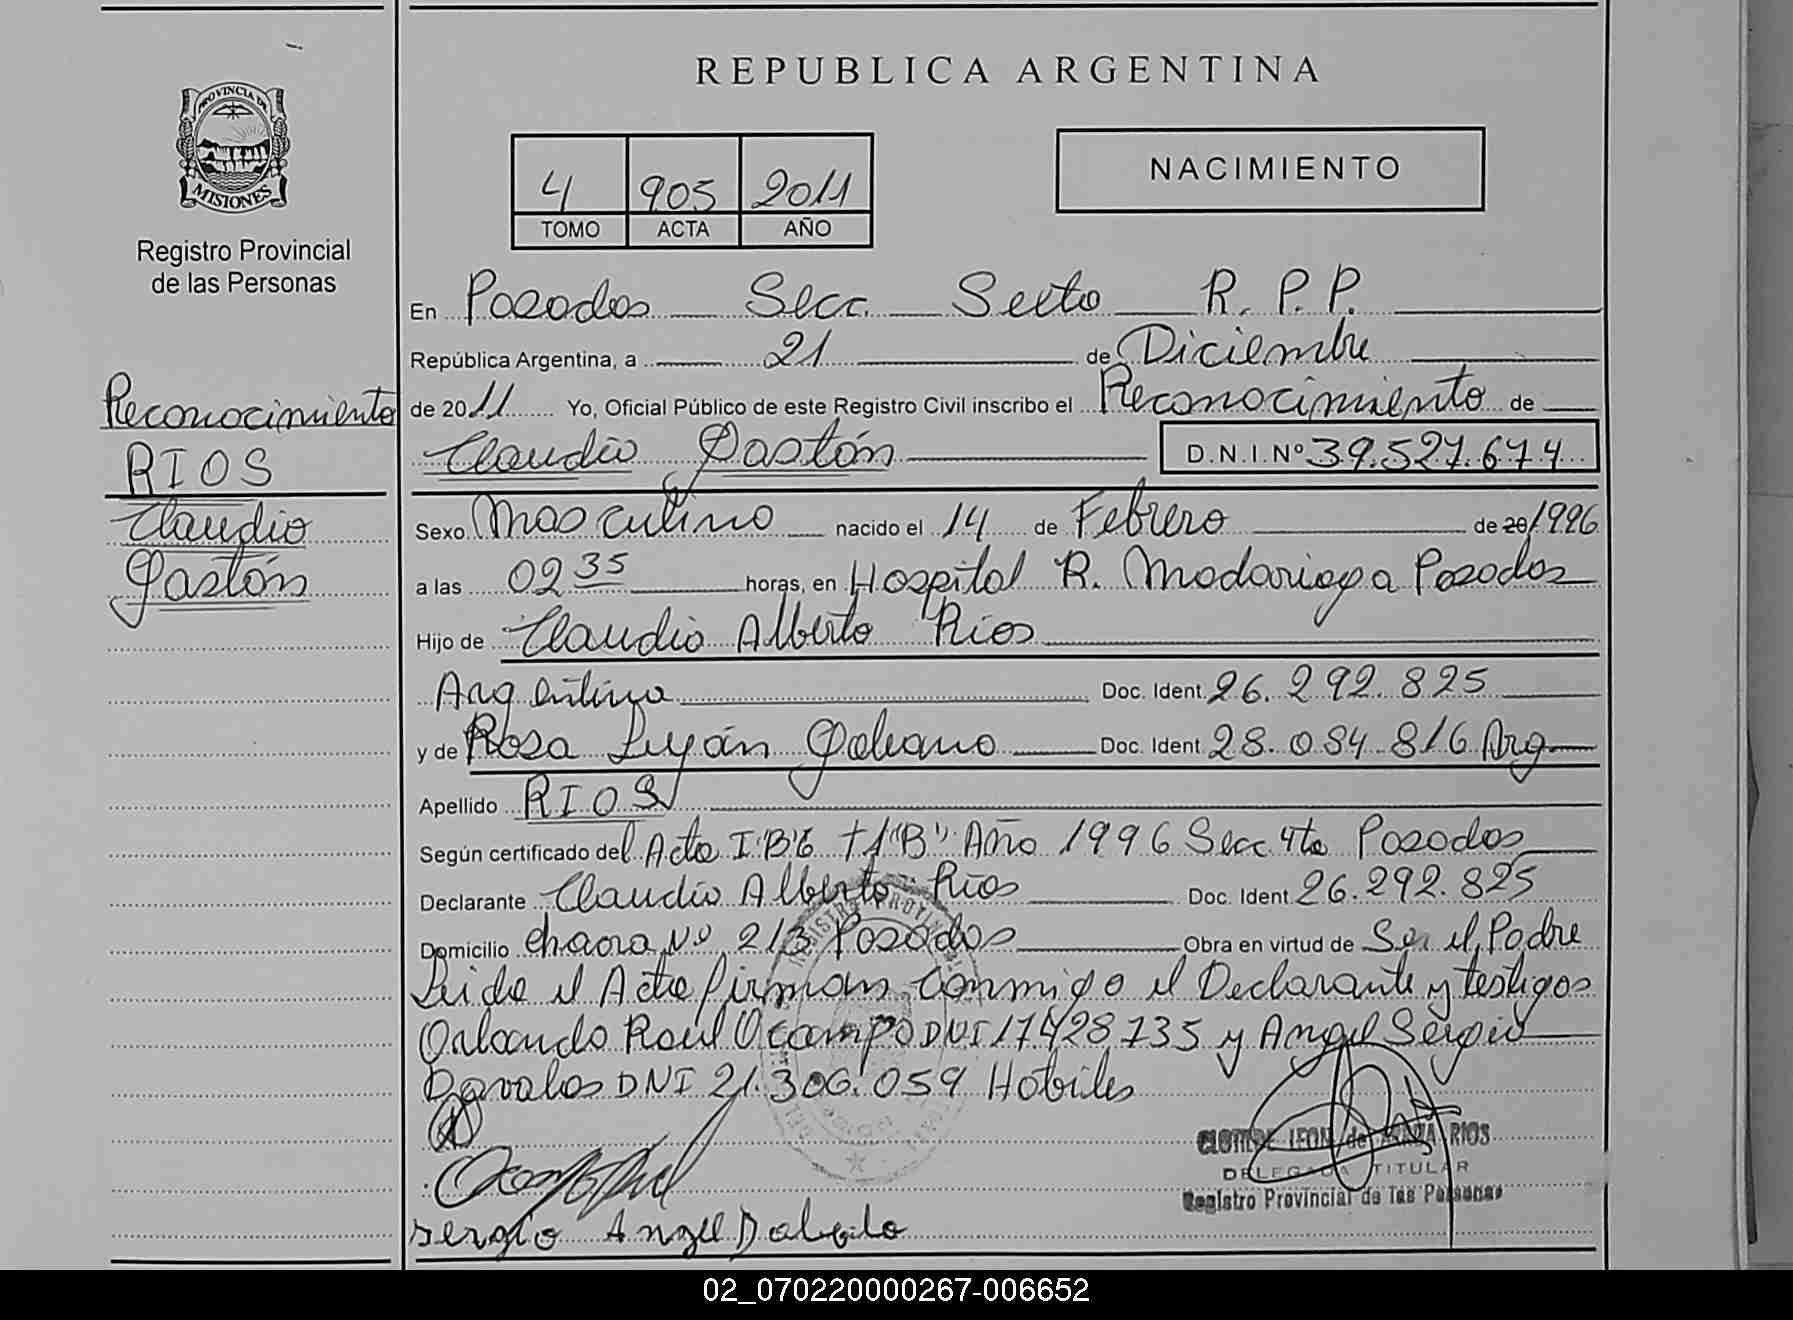 REPUBLICA ARGENTINA
PROVINCIA DE
MISIONES
Registro Provincial
de las Personas
4 905 2011
TOMO ACTA AÑO
NACIMIENTO
En Posadas Secc. Sexta R. P. P.
República Argentina, a 21 de Diciembre
Reconocimiento
RIOS
Claudio
Gastón
de 2011 Yo, Oficial Público de este Registro Civil inscribo el Reconocimiento de
Claudio Gastón D.N.I.Nº 39.527.674
Sexo Masculino nacido el 14 de Febrero de 20/1996
a las 02 35 horas, en Hospital R. Madariaga Posadas
Hijo de Claudio Alberto Rios
Argentino Doc. Ident. 26.292.825
y de Rosa Luján Galeano Doc. Ident. 28.084.816 Arg
Apellido RIOS
Según certificado del Acta "B" Año 1996 Secc 4ta Posadas
Declarante Claudio Alberto Rios Doc. Ident. 26.292.825
Domicilio chacra Nº 213 Posadas Obra en virtud de Ser el Padre
Leida el Acta firman conmigo el Declarante y testigos
Orlando Raul Ocampo DNI 17.428.735 y Angel Sergio
Davalos DNI 21.306.059 Habiles
RIOS
DELEGADA TITULAR
Registro Provincial de las Personas
Sergio Angel
02_070220000267-006652